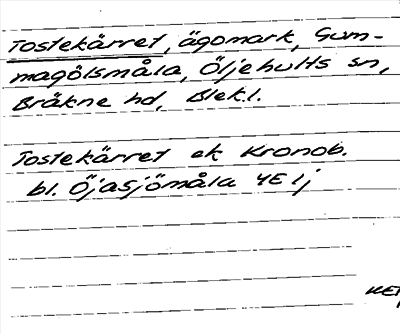 Tostekärret, ägomark, Gum-
magölsmåla, Öljehults sn,
Bräkne hd, Blek.l.
Tostekärret ek Kronob.
bl. Öjasjömåla 4E 1j